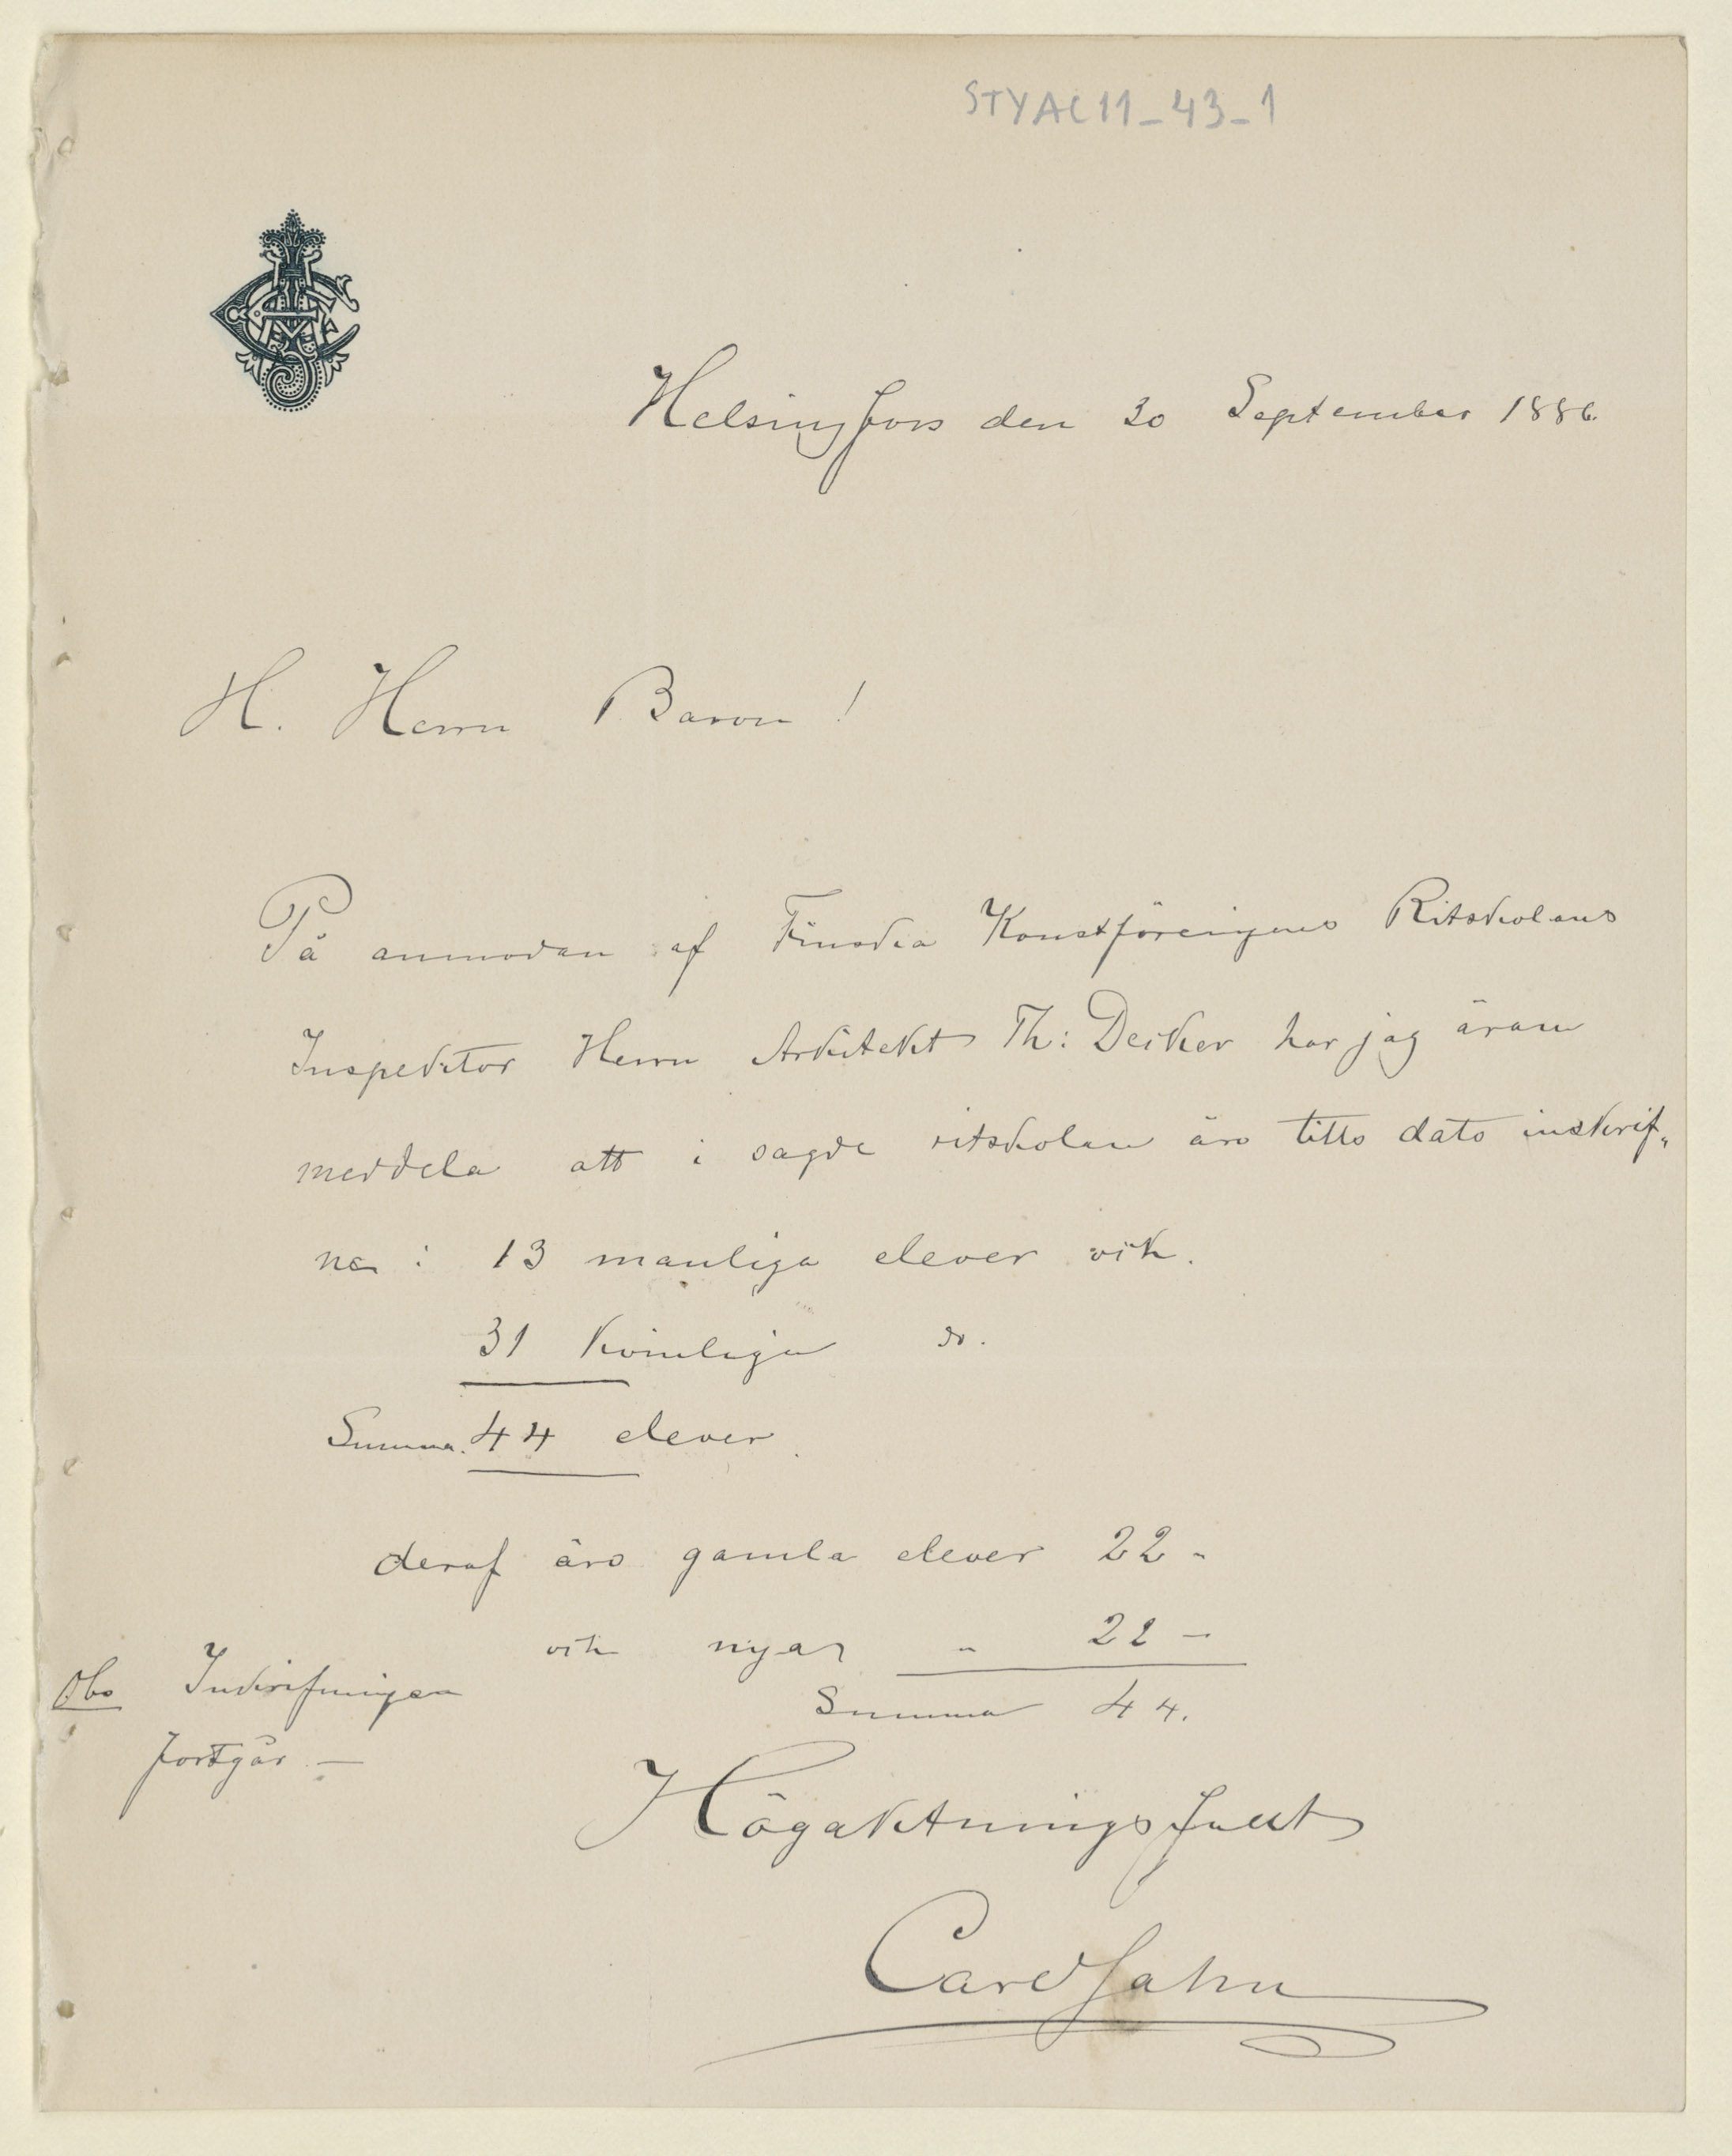 STYAC11_43_1
Helsingfors den 30 September 1886.
H. Herrn Baron!
På anmodan af Finska Konstföreningens Ritskolans
Inspektor Herrn Arkitekt Th: Decker har jag äran
meddela att i sagde ritskolan äro tills dato inskrif„
na : 13 manliga elever och.
31 kvinliga do.
Summa. 44 elever.
deraf äro gamla elever 22 -
och nya „ 22 –
Summa 44.
Obs Inskrifningen
fortgår. —
Högaktningsfullt
Carl Jahn